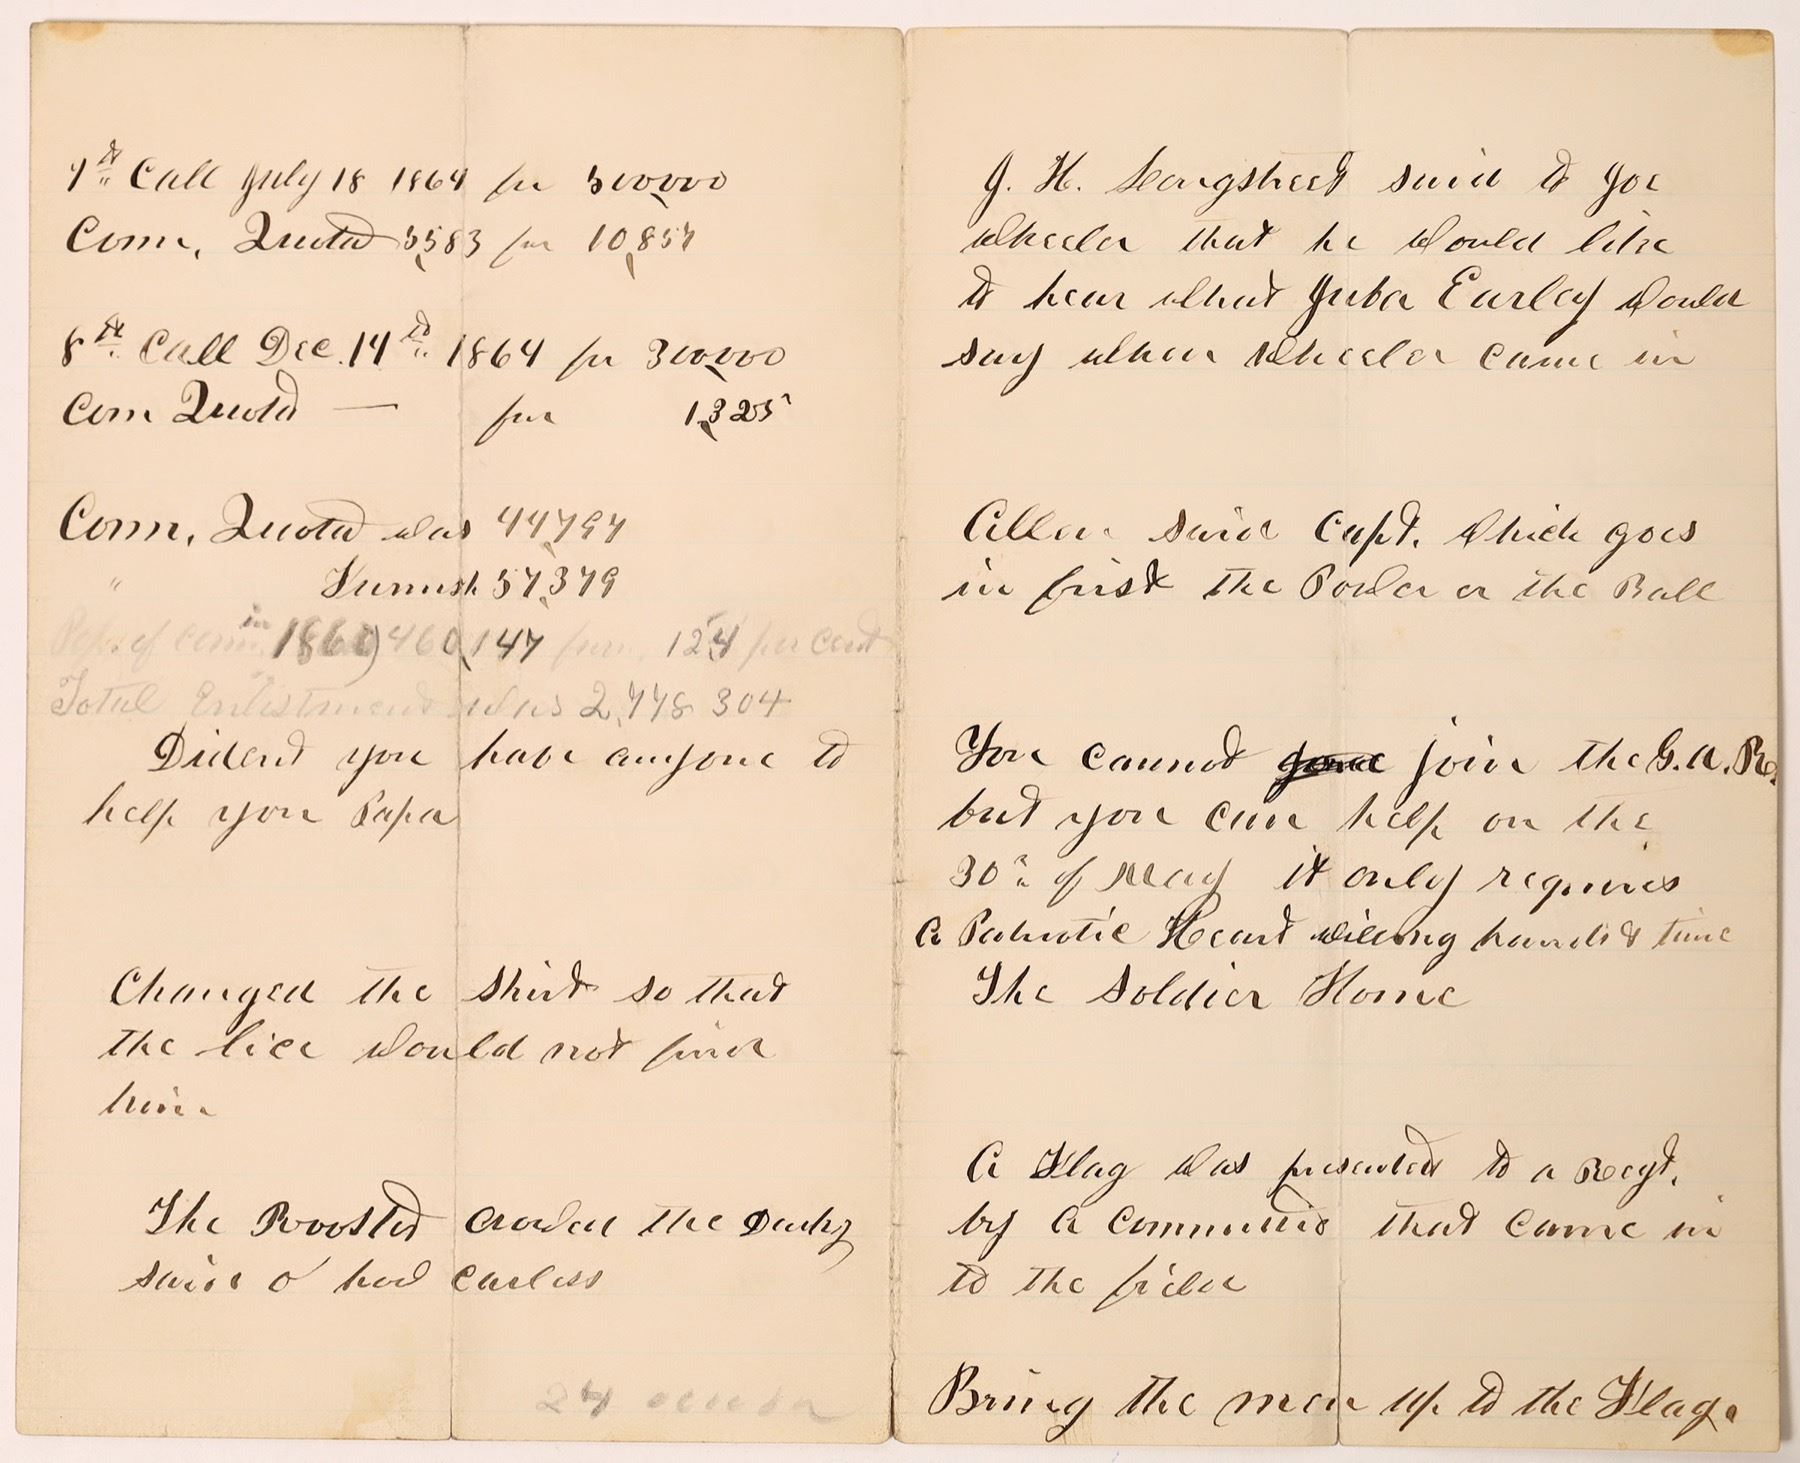 7th Call July 18 1864 for 500,000
Conn, Quota 5,583 for 10,857
8th Call Dec. 14th 1864 for 300,000
Con Quota — for 1,325
Conn, Quota was 44,797
" Furnish 57,379
Pop. of Conn in 1860) 460,147 furn. 12 4 per cent
Total Enlistment was 2,778 304
Dident you have anyone to
help you Papa
Changed the shirt so that
the lice would not find
him
The Roosted crowed the Darky
said o hed carless
24
J. H. Longstreet said to Joe
Wheeler that he would like
to hear what Juba Earley would
say when Wheeler came in
Allen said Capt. Which goes
in first the Powder or the Ball
You cannot join the G.A.R.
but you can help on the
30th of May it only requires
A Patriotic Heart willing hands & time
The Soldier Home
A Flag was presented to a Regt.
by a committe that came in
to the field
Bring the men up to the Flag.